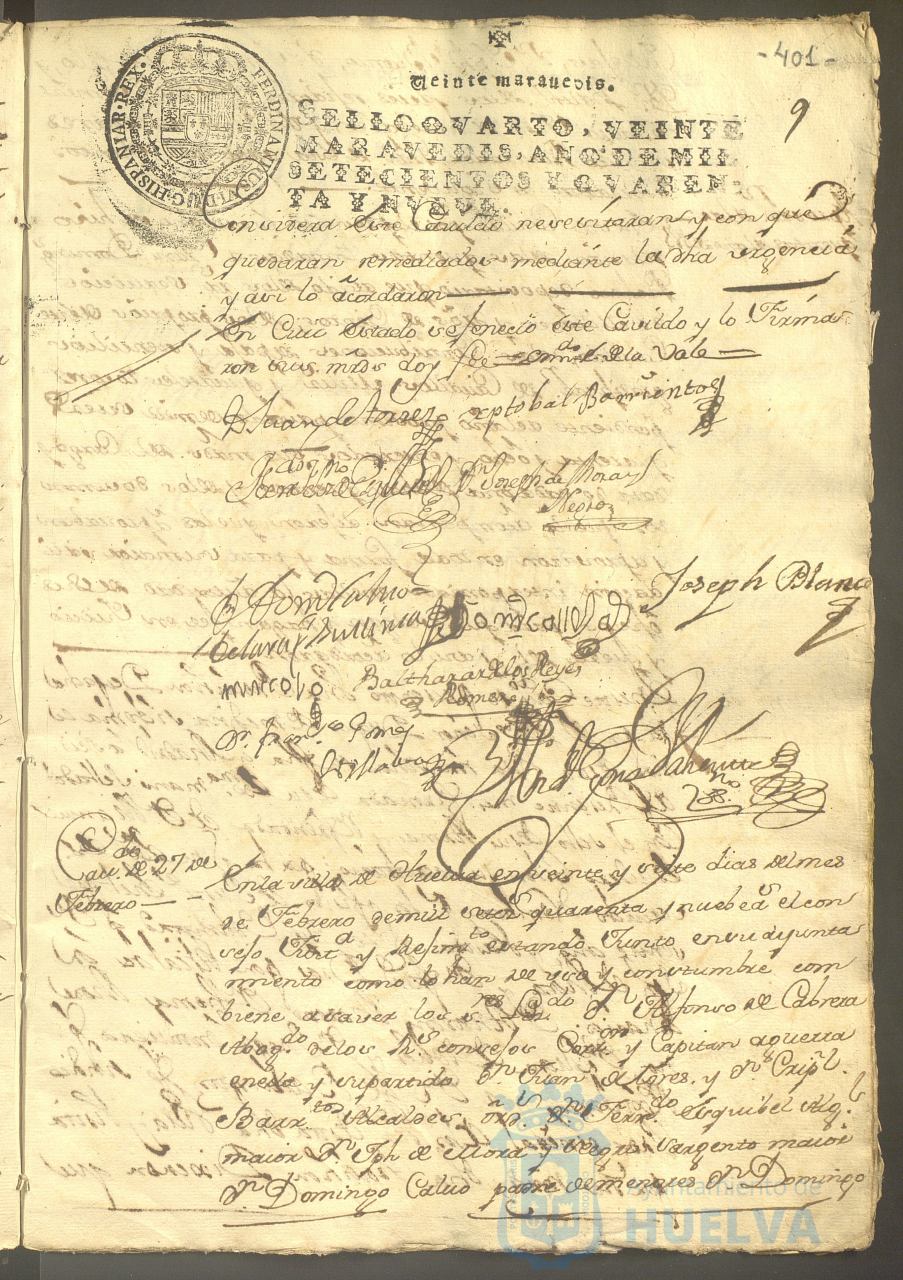 -401-
9
Veinte marauedis.
SELLO QVARTO, VEINTE
MARAVEDIS, AÑO DE MIL
SETECIENTOS Y QVAREN-
TA Y NVEVE.
FERDINANDUS VI D G HISPANIAR REX
considera este Cavildo nesesitaran y con que
quedaran remediados mediante la dha urgencia
y asi lo acordaron
En Cuio estado se feneció este Cavildo y lo Firma
ron sus mrds doy fee Vale
Dn Juan de Torres xptobal Barrientos
Dn Joseph de Mora y
Negro
Joseph Blanco
Balthazar de los Reyes
Romero
Cavdo de 27 de
Febrero
En la villa de Huelva en veinte y siete dias del mes
de Febrero de mil setos quarenta y nuebe as el con
sejo Justa y Rejimto estando Junto en su ayunta
miento como lo han de uso y costumbre com
biene a saver los sres Lizdo Dn Alfonso de Cabrera
Abogdo de los Rs consejos Corror y Capitan a guerra
en ella y su partido Dn Juan de Torres y Dn Cripl
Barrtos Alcaldes ords Dn Ferndo Esquibel Algl
maior Dn Jph de Mora y Negro Sargento maior
Dn Domingo Calvo padre de menores Dn Domingo
Ayuntamiento de
HUELVA